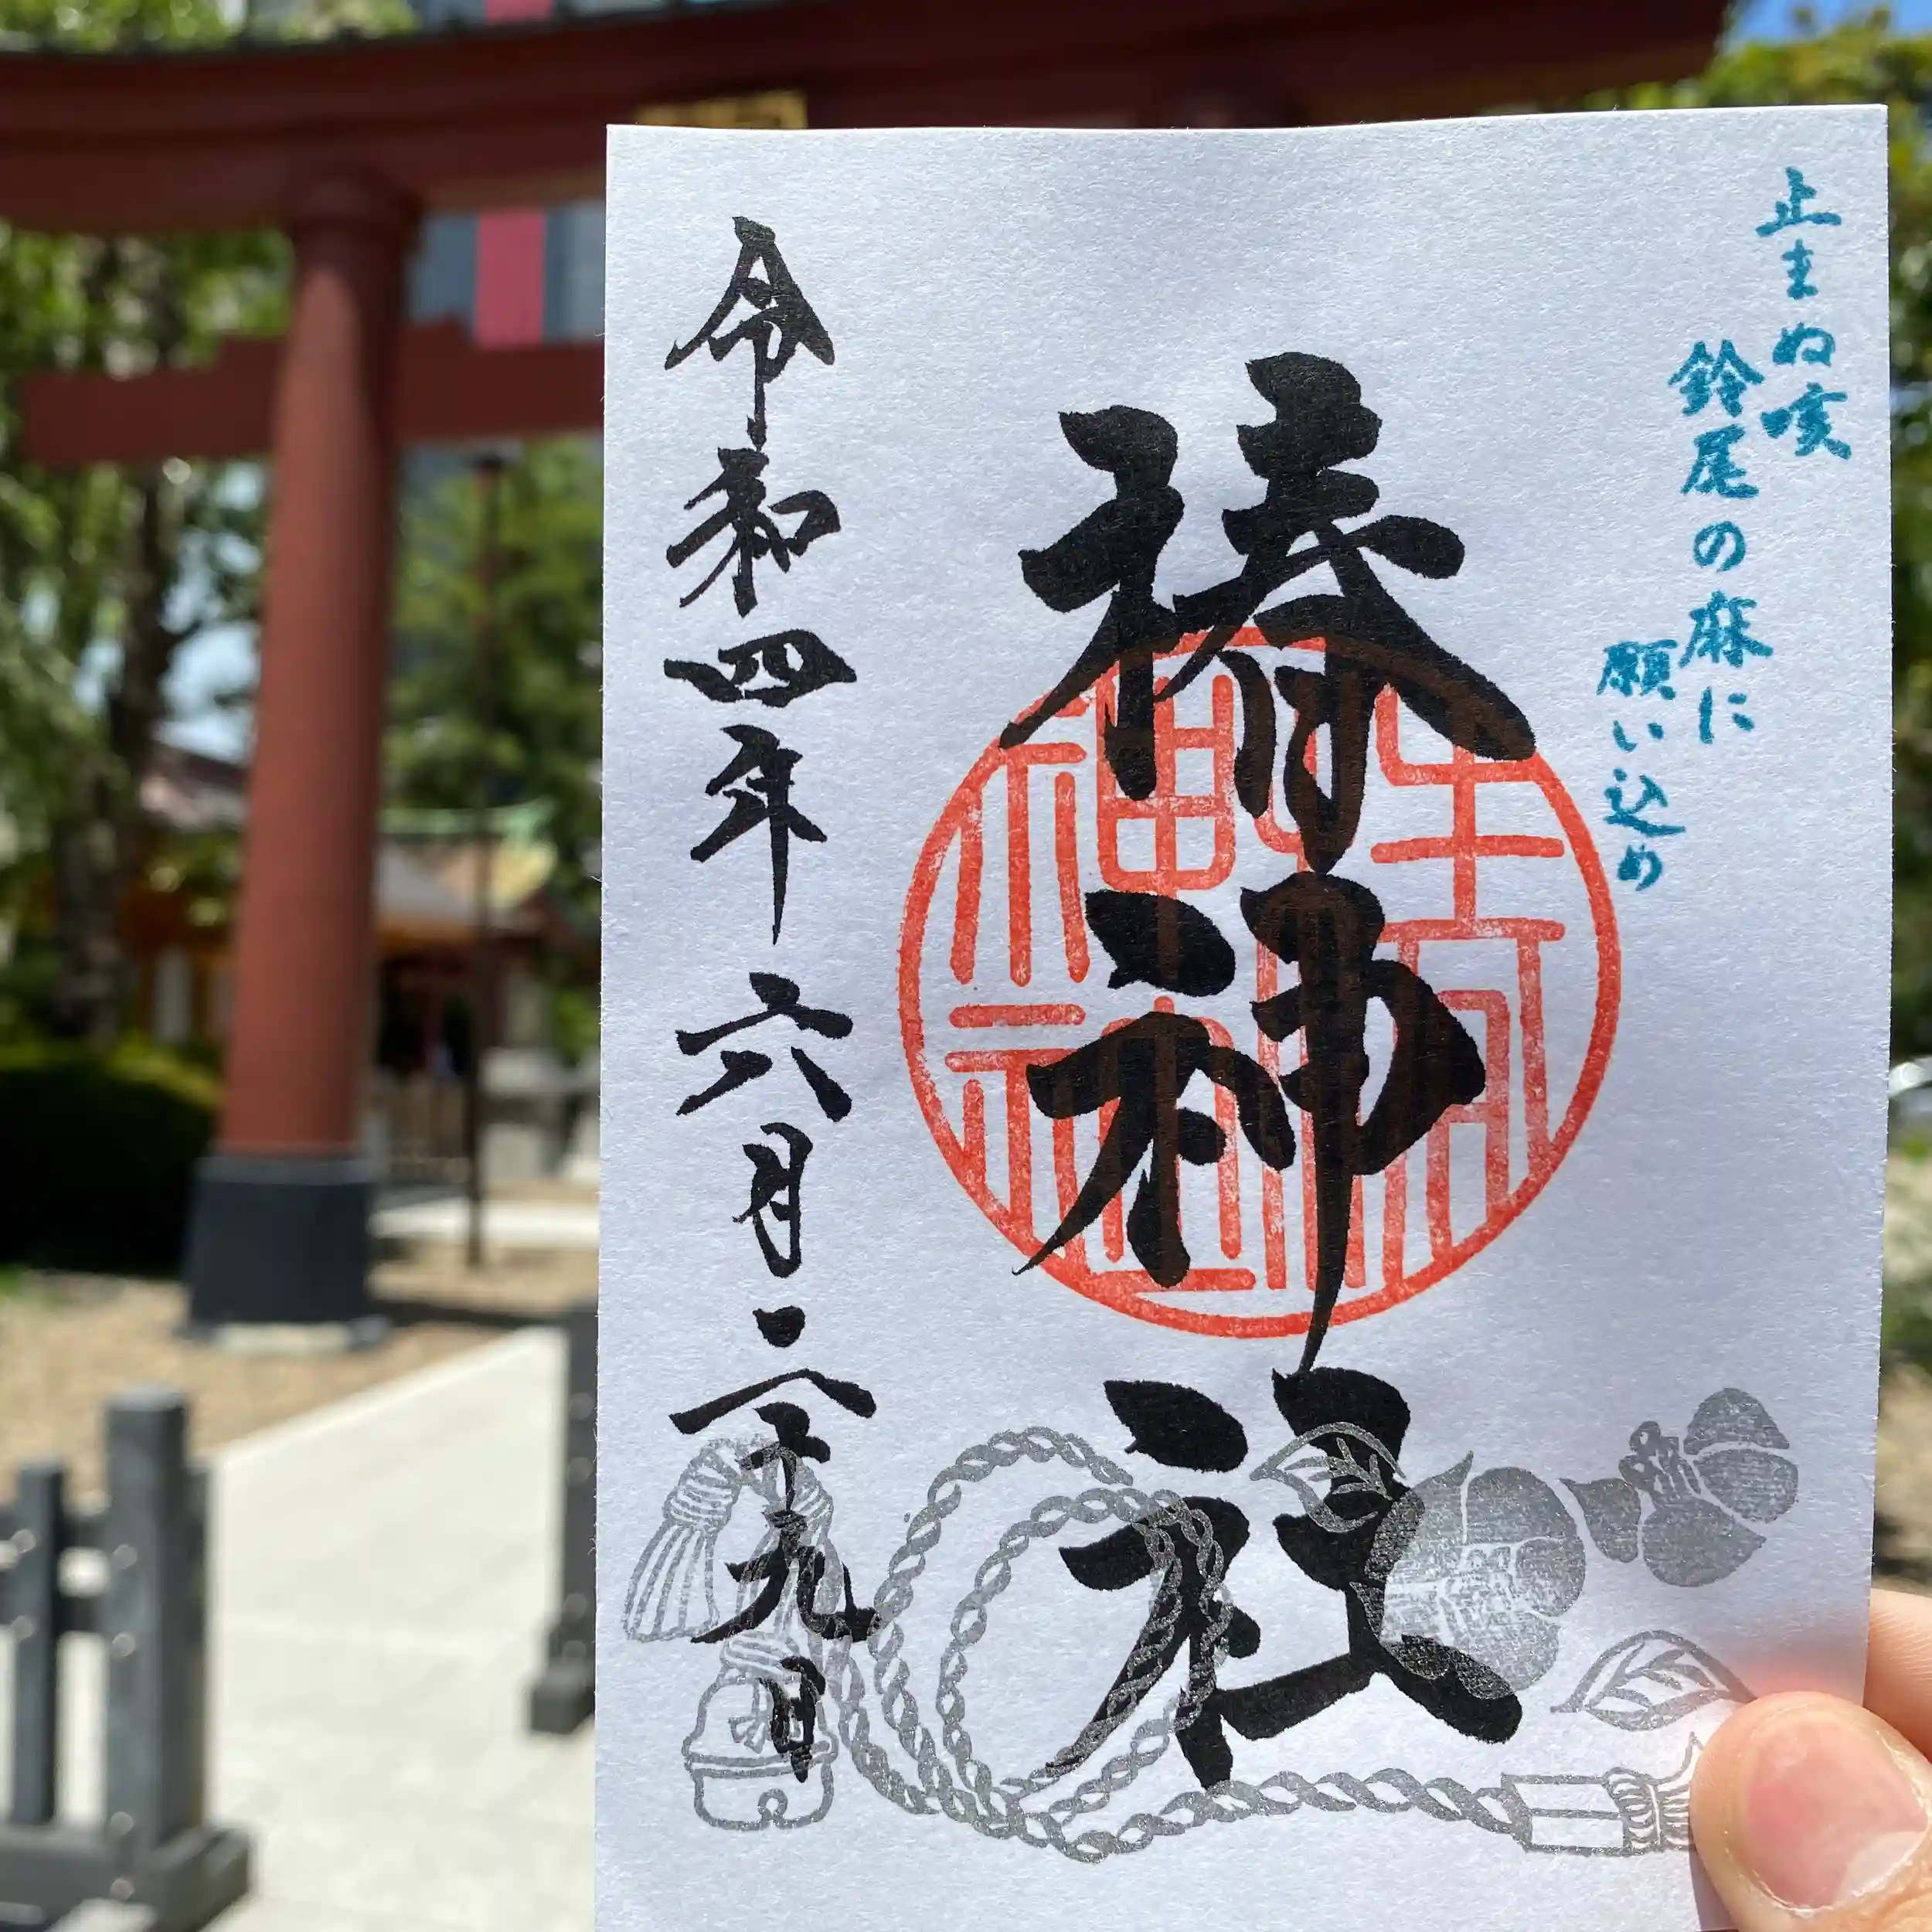 止まぬ咳
鈴尾の麻に
願い込め
椿神社
令和四年六月二十九日